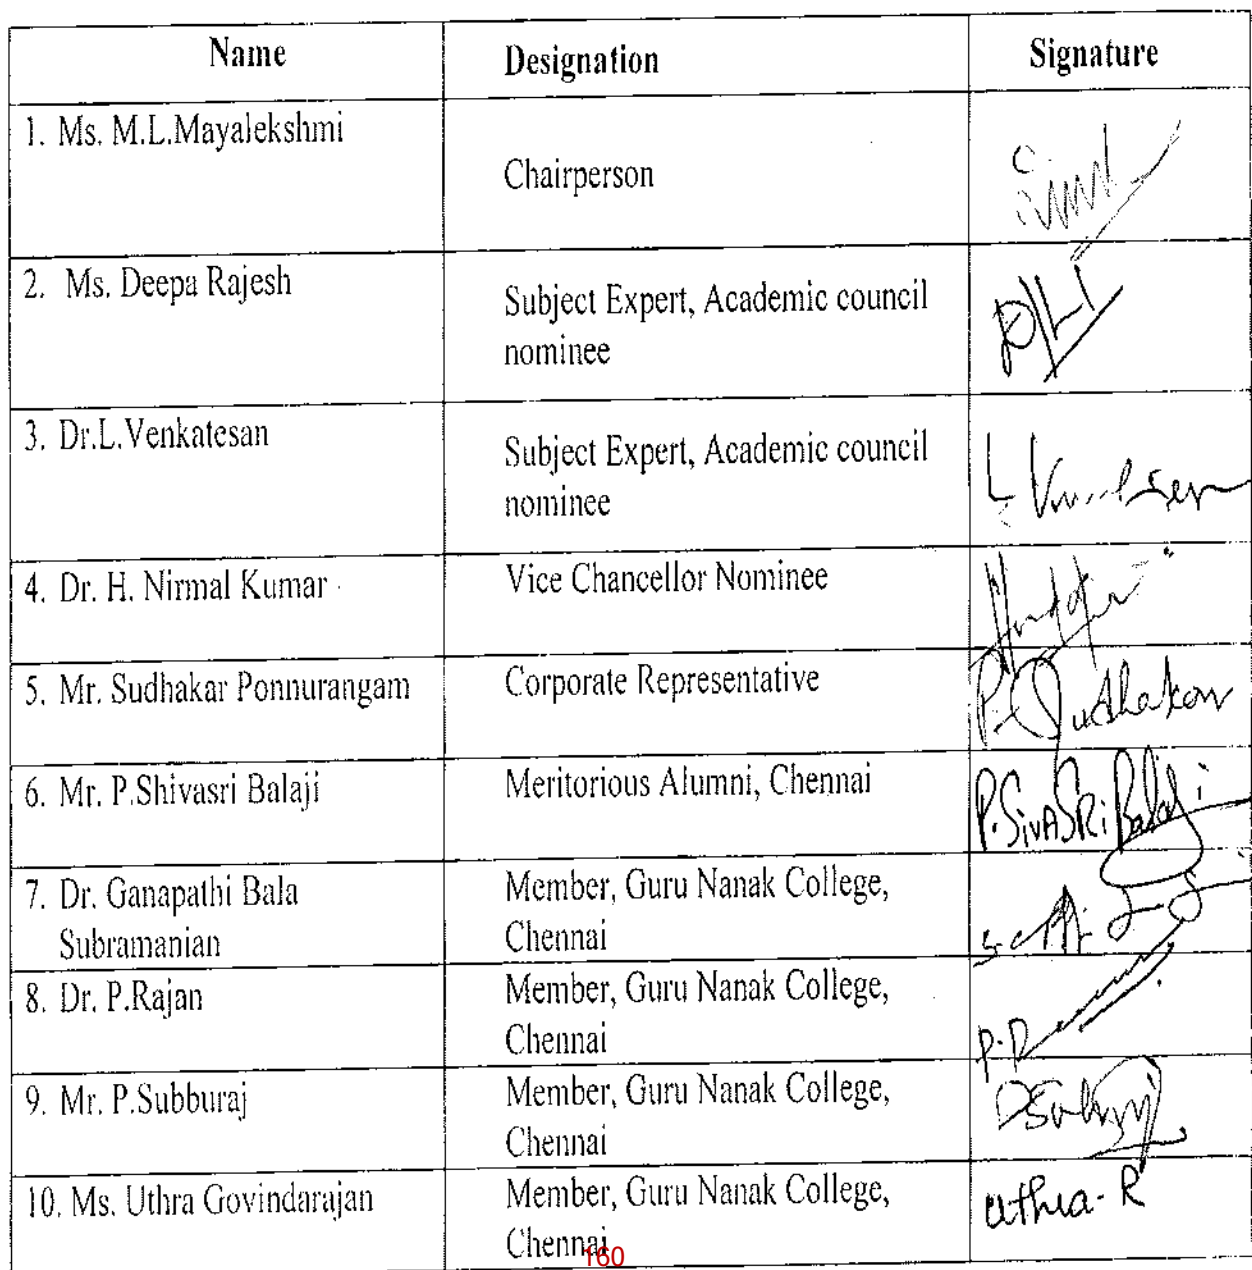 Name Designation Signature
1. Ms. M.L.Mayalekshmi
Chairperson
2. Ms. Deepa Rajesh
Subject Expert, Academic council
nominee
3. Dr.L.Venkatesan
Subject Expert, Academic council
nominee
L
4. Dr. H. Nirmal Kumar
Vice Chancellor Nominee
5. Mr. Sudhakar Ponnurangam
Corporate Representative
P. Sudhakar
6. Mr. P.Shivasri Balaji
Meritorious Alumni, Chennai
P. SivASRi Balaji
7. Dr. Ganapathi Bala
Subramanian
Member, Guru Nanak College,
Chennai
8. Dr. P.Rajan
Member, Guru Nanak College,
Chennai
9. Mr. P.Subburaj
Member, Guru Nanak College,
Chennai
10. Ms. Uthra Govindarajan
Member, Guru Nanak College,
Chennai
uthra-R
160